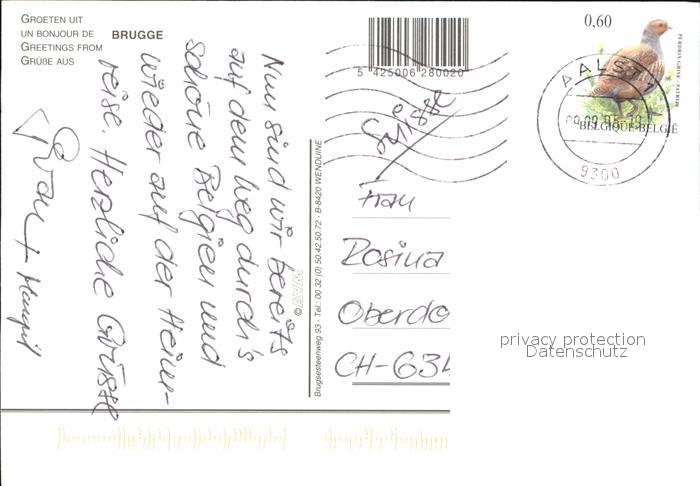 GROETEN UIT
UN BONJOUR DE
GREETINGS FROM
GRÜßE AUS
BRUGGE
Nun sind wir bereits
auf dem Weg durch's
schöne Belgien und
wieder auf der Heim-
reise. Herzliche Grüsse
©AVM
Brugsesteenweg 93 - Tel.: 00 32 (0) 50.42.50.72 - B-8420 WENDUINE
5 425006 280020
0,60
PERDRIX GRISE - PATRIJS
BELGIQUE-BELGIË
AALST 1
9300
Frau
Rosina
Oberdo
CH-634
privacy protection
Datenschutz